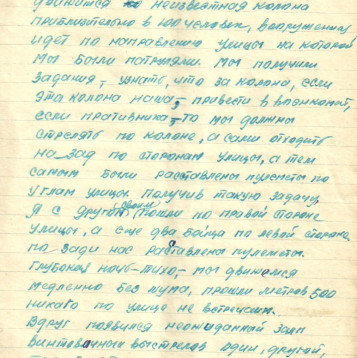 двинится неизвестная колона
приблизительно в 100 человек, вооруженных
идет по направлению улицы на которой
мы были патрулями. Мы получили
задания - узнать, что за колона, если
эта колона наша, - привести в военкомат,
если пративника - то мы должны
стрелять по колоне, а сами отходить
на зад по сторонам улицы, а тем
самым были раставлены пулеметы по
углам улицы. Получив такую задачу,
я с другом своим пошли по правой стороне
улицы, а еще два бойца по левой стороне,
по-зади нас раставлена пулеметы.
Глубокая ночь - тихо, - мы двигаемся
медленно без шума, прошли метров 500
никаво по улице не встречаем.
Вдруг появился неожиданной залп
винтовачных выстрелов один, другой,